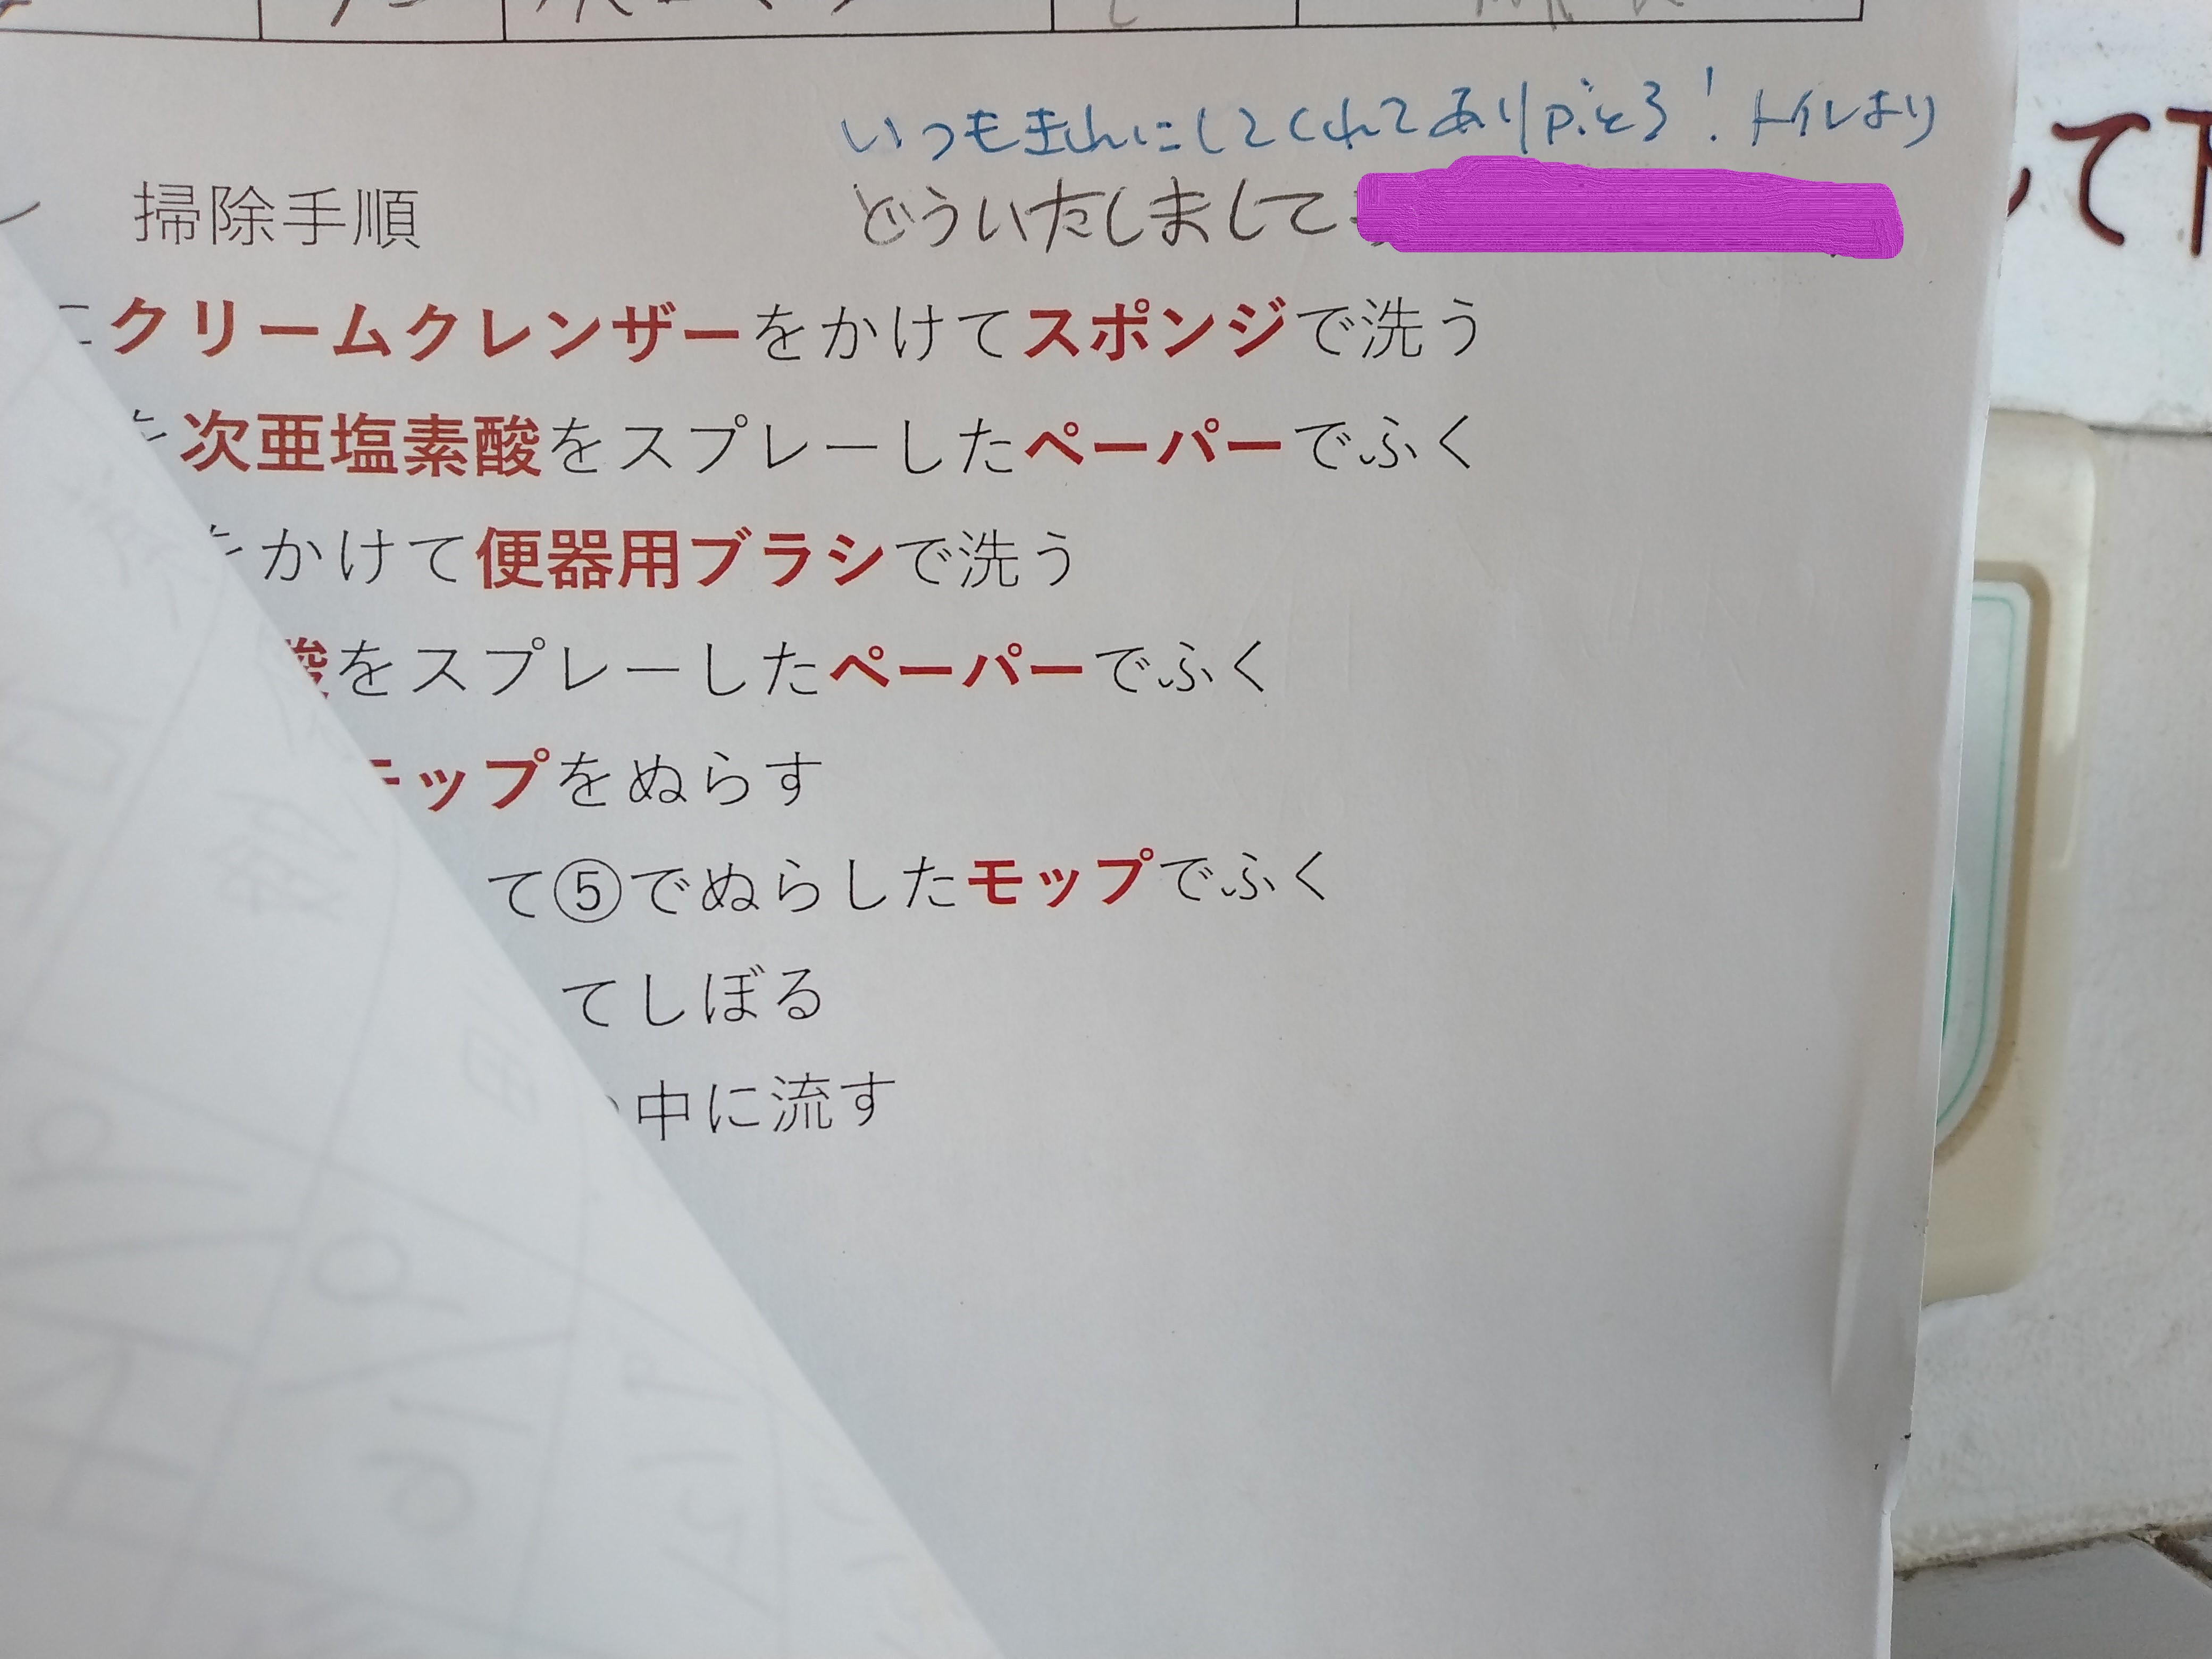 いつもきれいにしてくれてありがとう！トイレより
掃除手順
どういたしまして
クリームクレンザーをかけてスポンジで洗う
を次亜塩素酸をスプレーしたペーパーでふく
をかけて便器用ブラシで洗う
酸をスプレーしたペーパーでふく
モップをぬらす
て⑤でぬらしたモップでふく
てしぼる
中に流す
て下